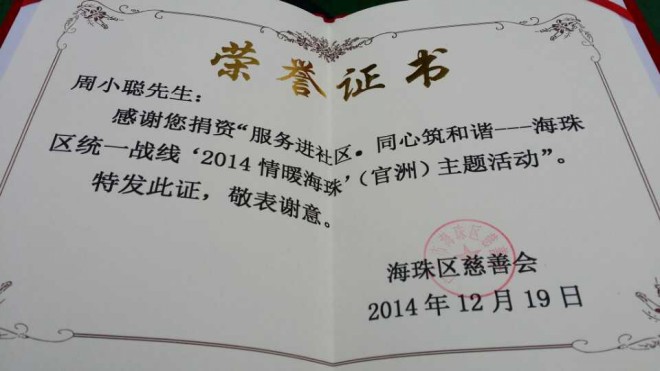 荣誉证书
周小聪先生：
感谢您捐资“服务进社区·同心筑和谐---海珠
区统一战线‘2014情暖海珠’（官洲）主题活动”。
特发此证，敬表谢意。
海珠区慈善会
2014年12月19日